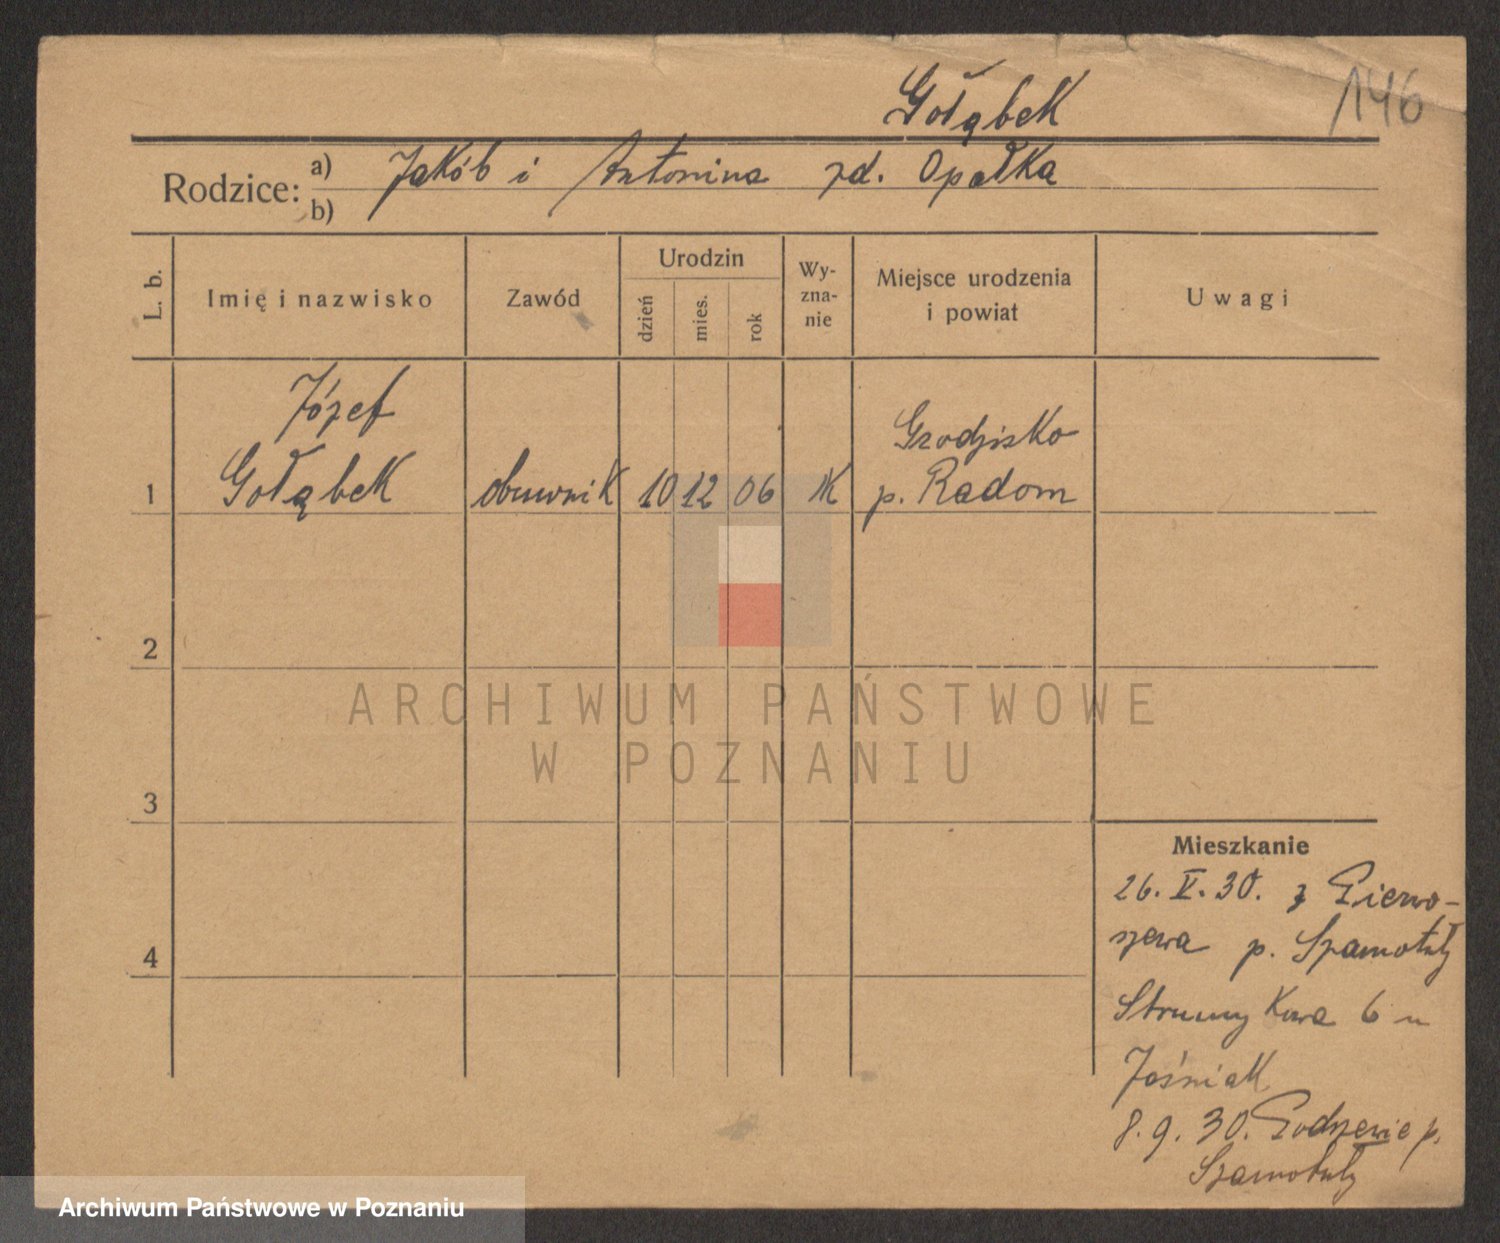 Gołąbek 146
Rodzice: a) Jakób i Antonina zd. Opałka
b)
L. b. Imię i nazwisko Zawód Urodzin dzień mies. rok Wy-zna-nie Miejsce urodzenia i powiat Uwagi
Józef Grodzisko
1 Gołąbek obuwnik 10 12 06 K p. Radom
2
ARCHIWUM PAŃSTWOWE
W POZNANIU
3
Mieszkanie
26. V. 30. z Pierwo-
szewa p. Szamotuły
4
Strumykowa 6 u
Jaśniak
8. 9. 30. p.
Szamotuły
Archiwum Państwowe w Poznaniu